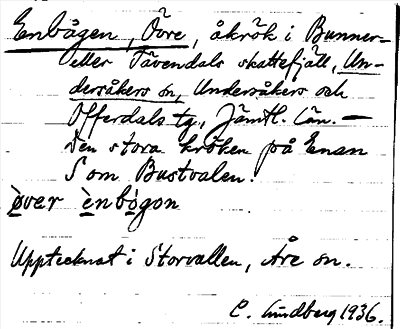 Enbågen, Övre, åkrök i Bunner-
eller Tävendals skattefjäll, Un-
dersåkers sn, Undersåkers och
Offerdals tg., Jämtl. län. —
Den stora kröken på Enan
S om Bustvalen.
ò̱ver è̱nbò̱gon
Upptecknat i Storvallen, Åre sn.
C. Lundberg 1936.